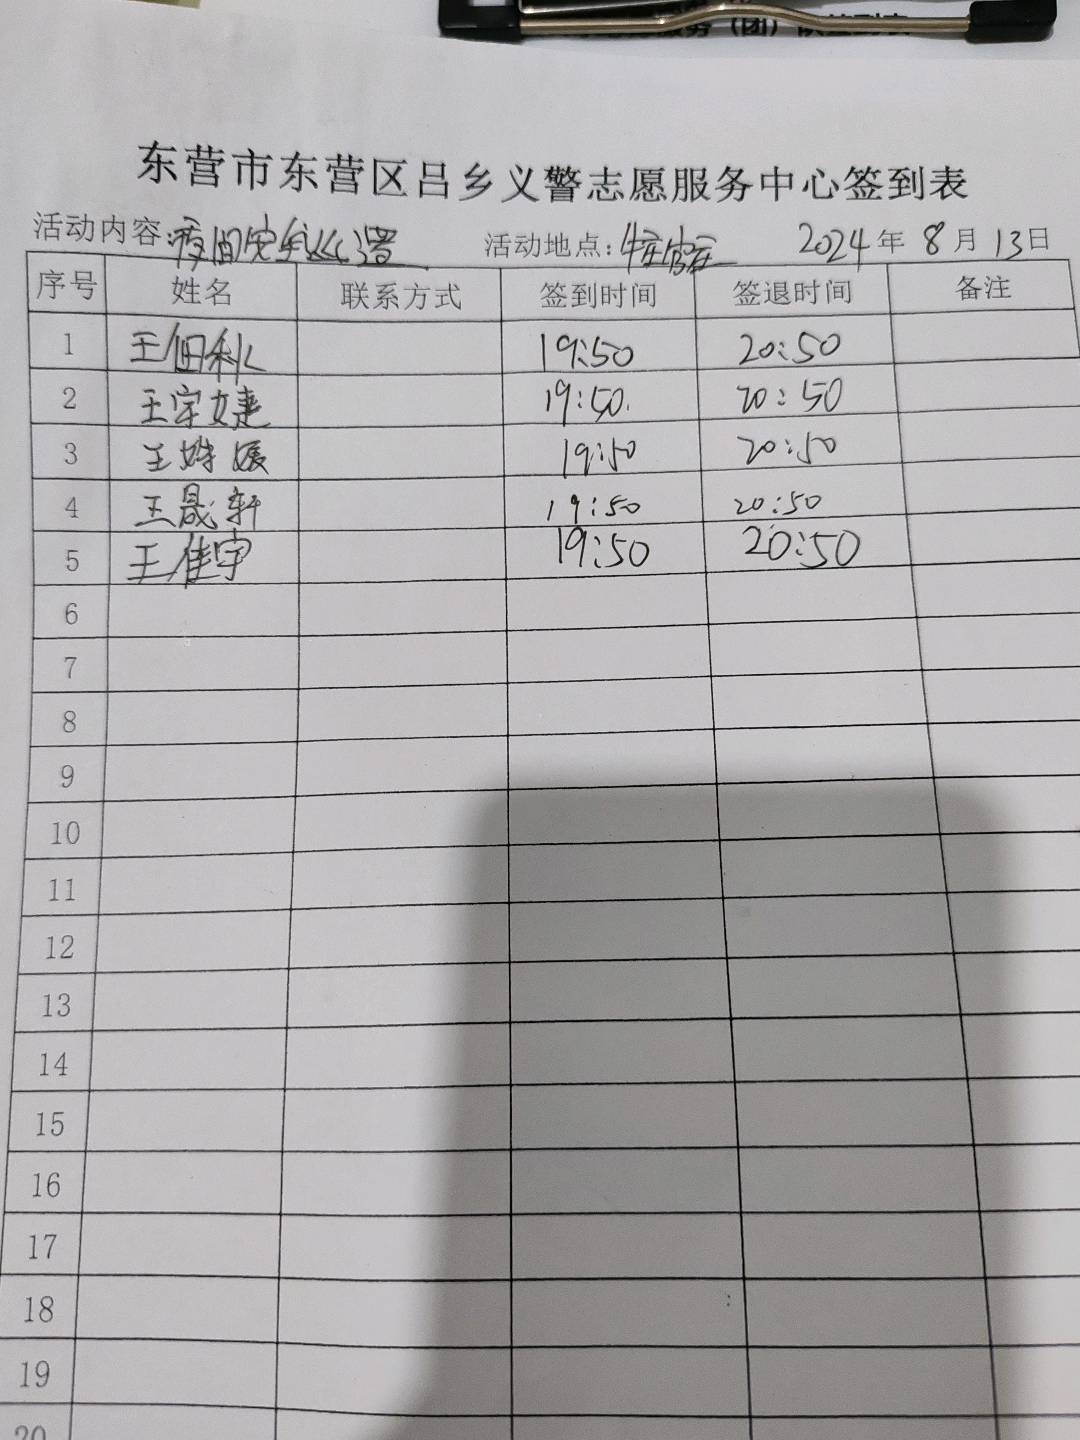 东营市东营区吕乡义警志愿服务中心签到表
活动内容: 夜间安全巡逻 活动地点: 2024年8月13日
序号 姓名 联系方式 签到时间 签退时间 备注
1 王佃利 19:50 20:50
2 王宇婕 19:50. 20:50
3 王姝媛 19:50 20:50
4 王晟轩 19:50 20:50
5 王佳宇 19:50 20:50
6
7
8
9
10
11
12
13
14
15
16
17
18
19
20